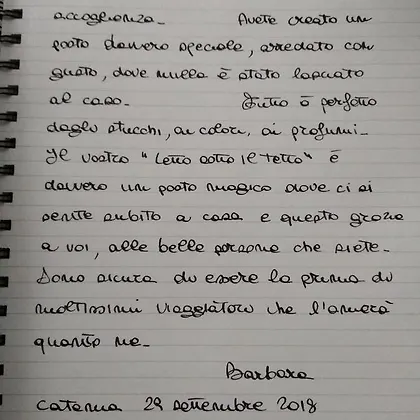 accoglienza. Avete creato un
posto davvero speciale, arredato con
gusto, dove nulla è stato lasciato
al caso. Tutto è perfetto
dagli stucchi, ai colori, ai profumi.
Il vostro "Letto sotto le tetto" è
davvero un posto magico dove ci si
sente subito a casa e questo grazie
a voi, alle belle persone che siete.
Sono sicura di essere la prima di
moltissimi viaggiatori che l'amerà
quanto me.
Barbara
Catania 29 settembre 2018